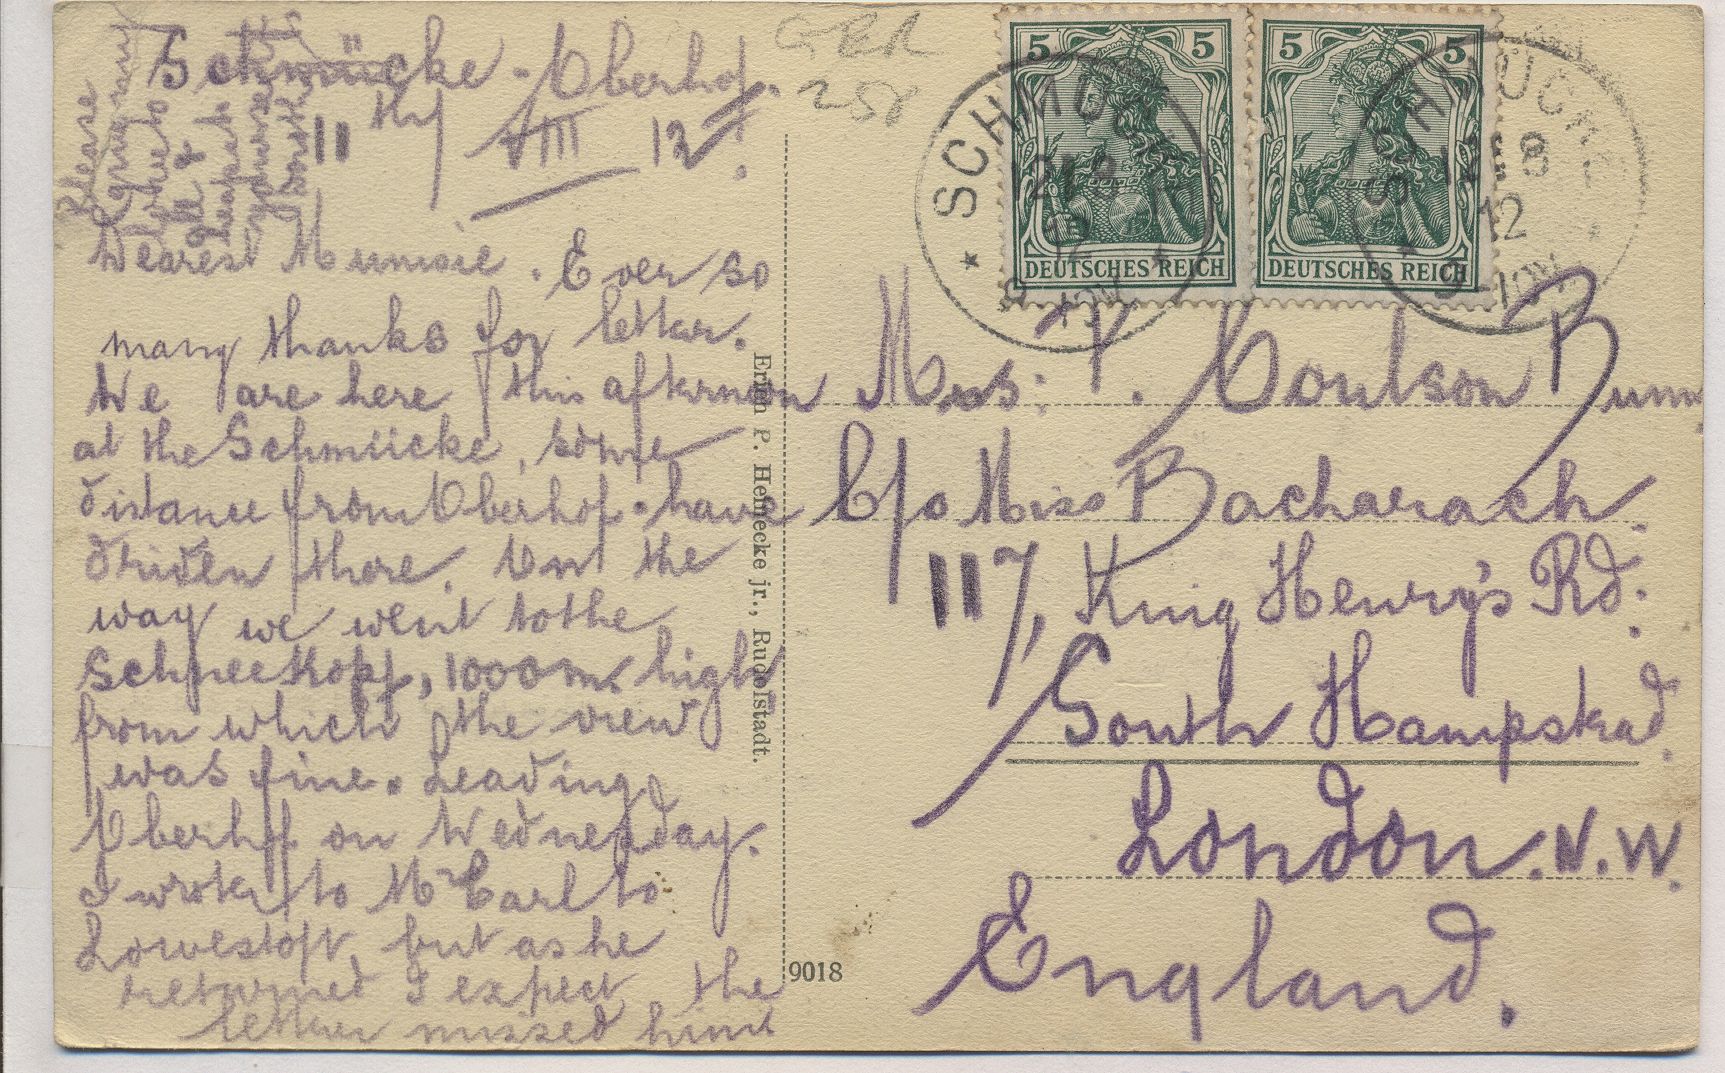 Schmücke - Oberhof.
11th VIII 12.
Dearest Mummie. Ever so
many thanks for letter.
We are here this afternoon
at the Schmücke, some
distance from Oberhof - have
driven there. On the
way we went to the
Schneekopf, 1000 m. high,
from which the view
was fine. Leaving
Oberhof on Wednesday.
I wrote to Mr Carl to
Lowestoft, but as he
returned I expect the
letter missed him
Please
GER
258
5 5
DEUTSCHES REICH
5 5
DEUTSCHES REICH
SCHMÜCKE
12 8
12
9-10V
SCHMÜCKE
12 8
12
9-10V
Mrs. P. Coulson Bunn
C/o Miss Bacharach.
117, King Henry's Rd.
South Hampstead.
London. N.W.
England.
Erich P. Hennecke jr., Rudolstadt.
9018